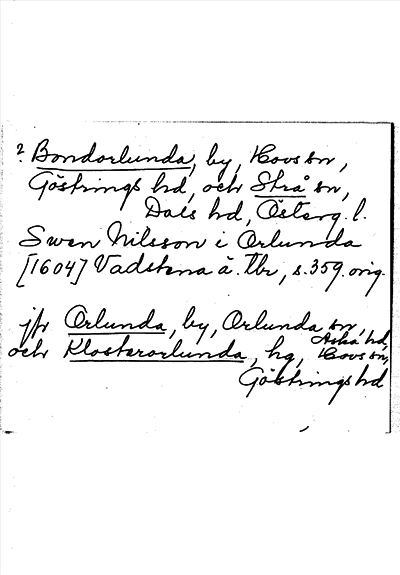 ? Bondorlunda, by, Hovs sn,
Göstrings hd, och Strå sn,
Dals hd, Österg. l.
Swen Nilsson i Orlunda
[1604] Vadstena ä. tbr, s. 359. orig.
jfr Orlunda, by, Orlunda sn, Aska hd,
och Klosterorlunda, hg, Hovs sn,
Göstrings hd